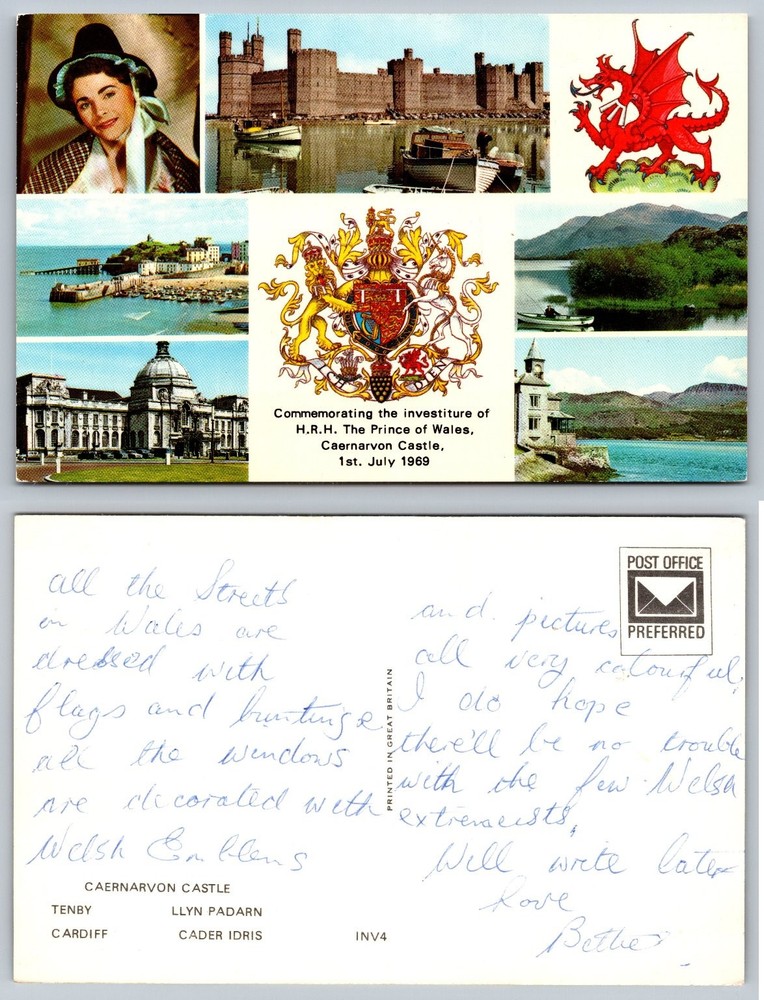 Commemorating the investiture of
H.R.H. The Prince of Wales,
Caernarvon Castle,
1st. July 1969
all the Streets
in Wales are
dressed with
flags and buntings
all the windows
are decorated with
Welsh Emblems
CAERNARVON CASTLE
TENBY LLYN PADARN
CARDIFF CADER IDRIS
INV4
PRINTED IN GREAT BRITAIN
POST OFFICE
PREFERRED
and pictures
all very colourful,
I do hope
there'll be no trouble
with the few Welsh
extremeists,
Will write later
Love